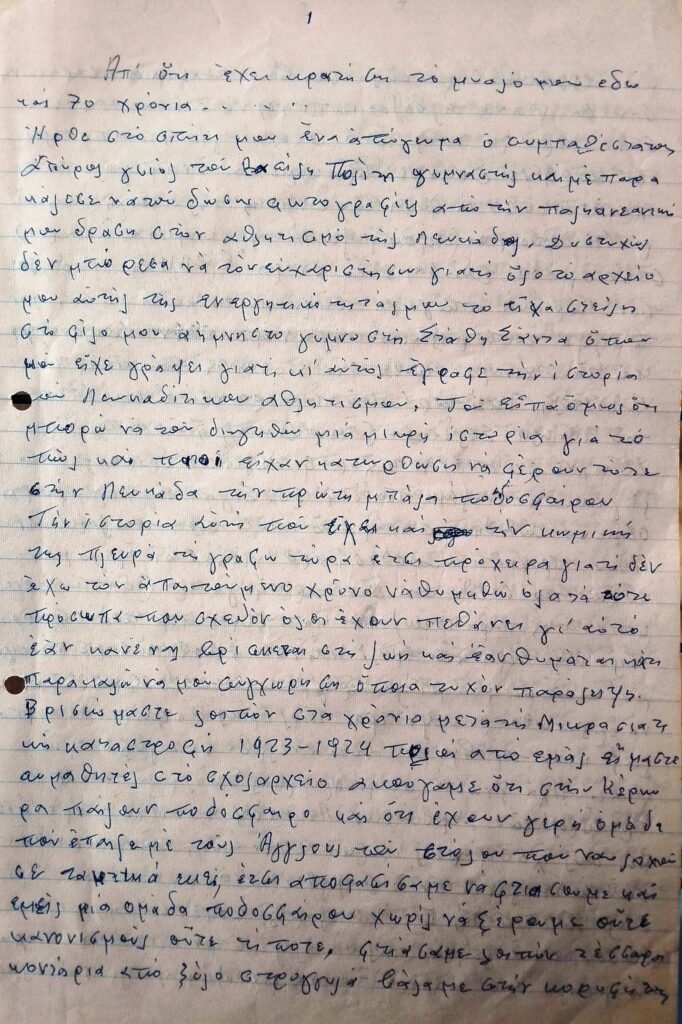 1
Απ' ότι έχει κρατήση το μυαλό μου εδώ
και 70 χρόνια. . . . . .
Ήρθε στο σπίτι μου ένα απόγευμα ο συμπαθέστατος
Σπύρος γυιός του Βασίλη Πολίτη γυμναστής και με παρα
κάλεσε να του δώσω φωτογραφίες από την παληά νεανική
μου δράση στον αθλητισμό της Λευκάδος. Δυστυχώς
δεν μπόρεσα να τον ευχαριστήσω γιατί όλο το αρχείο
μου αυτής της ενεργητικότητας μου το είχα στείλη
στο φίλο μου αείμνηστο γυμναστή Στάθη Σάντα όπου
μου είχε γράψει γιατί κι' αυτός έγραφε την ιστορία
του Λευκαδίτικου αθλητισμού. Του είπα όμως ότι
μπορώ να του διηγηθώ μιά μικρή ιστορία για το
πώς και ποιοί είχαν κατορθώση να φέρουν τότε
στην Λευκάδα την πρώτη μπάλα ποδοσφαίρου
Την ιστορία αυτή που έχει και την κωμική
της πλευρά τη γράφω τώρα έτσι πρόχειρα γιατί δεν
έχω τον απαιτούμενο χρόνο να θυμηθώ όλα τα τότε
πρόσωπα που σχεδόν όλοι έχουν πεθάνει γι' αυτό
εάν κανένας βρίσκεται στη ζωή και εάν θυμάται κάτι
παρακαλώ να μου συγχωρήση όποια τυχόν παράλειψη.
Βρισκόμαστε λοιπόν στα χρόνια μετά τη Μικρασιατι
κή καταστροφή 1923-1924 πολλοί από εμάς είμαστε
μαθητές στο σχολαρχείο ακούγαμε ότι στην Κέρκυ
ρα παίζουν ποδόσφαιρο και ότι έχουν γερή ομάδα
που έπαιζε με τους Άγγλους του στόλου που ναυλοχούσε
σε τακτικά εκεί, έτσι αποφασίσαμε να φτιάσουμε και
εμείς μία ομάδα ποδοσφαίρου χωρίς να ξέρουμε ούτε
κανονισμούς ούτε τίποτε. Φτιάσαμε λοιπόν τέσσαρα
κοντάρια από ξύλο στρογγυλά βάλαμε στην κορυφή τους